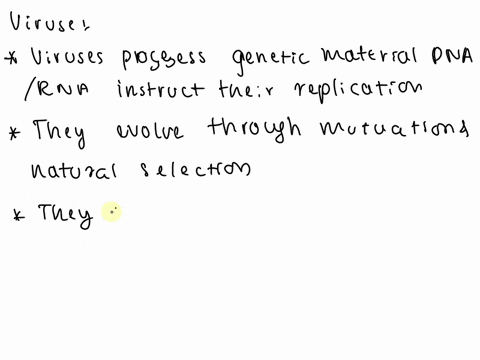 Viruses
* Viruses possess genetic material DNA
/RNA instruct their replication
* They evolve through mutuations
natural selection
* They